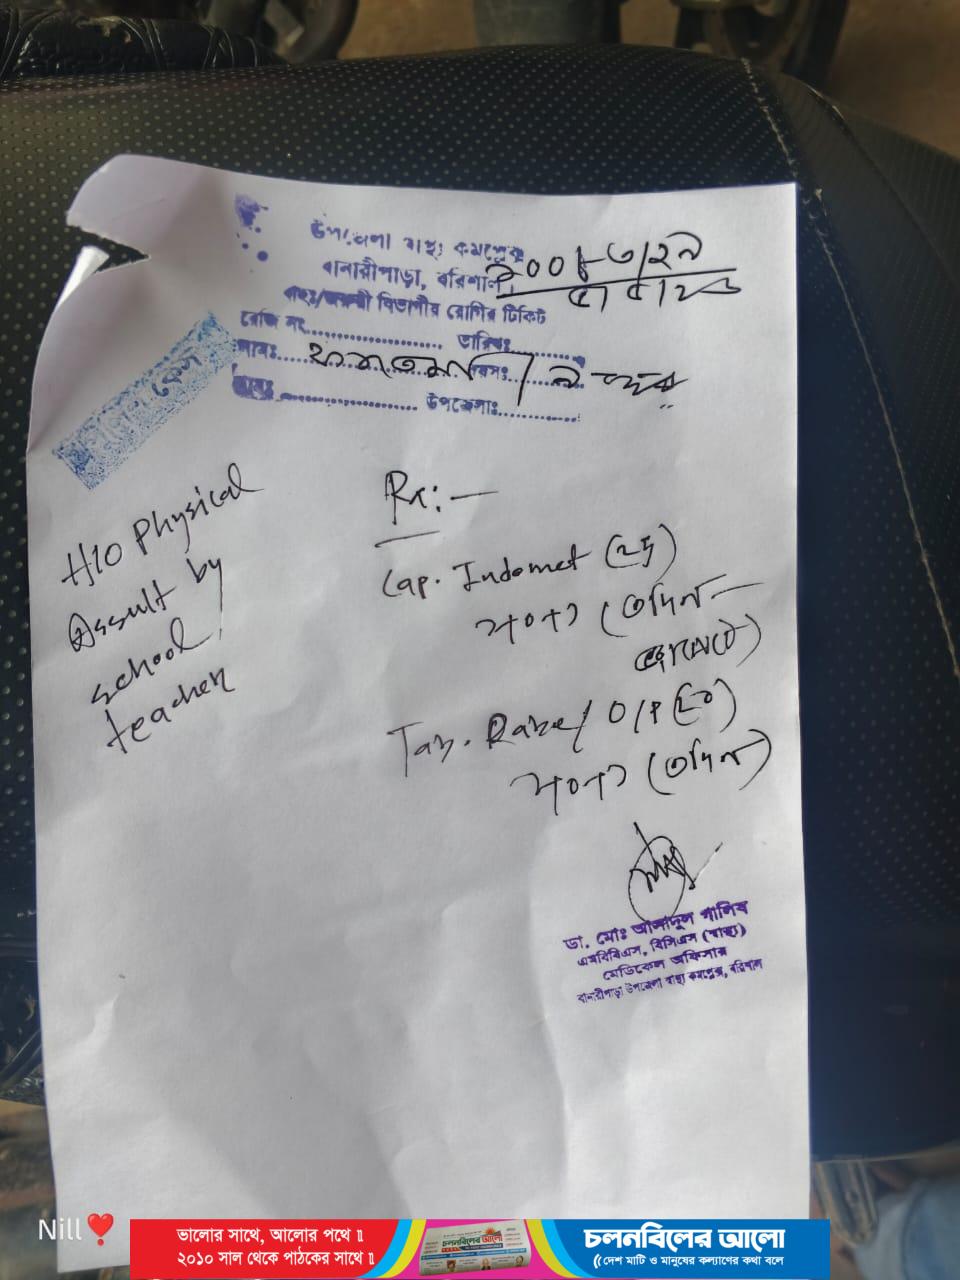 উপজেলা স্বাস্থ্য কমপ্লেক্স
বানারীপাড়া, বরিশাল।
বহিঃ/জরুরী বিভাগীয় রোগির টিকিট
রেজি নং.................... তারিখঃ............
নামঃ.... ফাতেমা বয়সঃ
উপজেলাঃ............
পুলিশ কেস
H/O Physical
Assult by
school
teacher
Rx:—
Cap. Indomet (25)
১+০+১ (৩দিন—
Tab. Rabe
১+০+১ (৩দিন)
ডা. মোঃ আসাদুল গালিব
এমবিবিএস, বিসিএস (স্বাস্থ্য)
মেডিকেল অফিসার
বানারীপাড়া উপজেলা স্বাস্থ্য কমপ্লেক্স, বরিশাল
Nill❤️
ভালোর সাথে, আলোর পথে॥
২০১০ সাল থেকে পাঠকের সাথে॥
চলনবিলের আলো
চলনবিলের আলো
দেশ মাটি ও মানুষের কল্যাণের কথা বলে